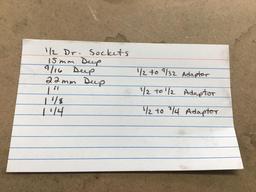 1/2 Dr. Sockets
15mm Deep
9/16 Deep
1/2 to 9/32 Adaptor
22mm Deep
1"
1/2 to 1/2 Adaptor
1 1/8
1 1/4
1/2 to 3/4 Adaptor